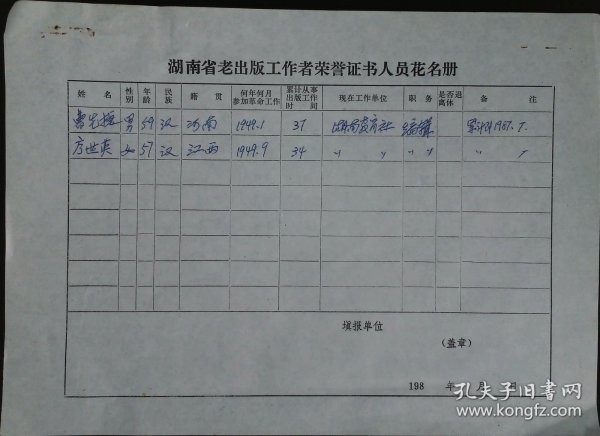 湖南省老出版工作者荣誉证书人员花名册
姓 名 性别 年龄 民族 籍 贯 何年何月参加革命工作 累计从事出版工作时间 现在工作单位 职 务 是否退离休 备 注
男 59 汉 河南 1949.1 37 编辑
方世英 女 57 汉 江西 1949.9 34 〃 〃 〃 〃 〃
填报单位
(盖章)
198 年 月 日
孔夫子旧书网
www.kongfz.com